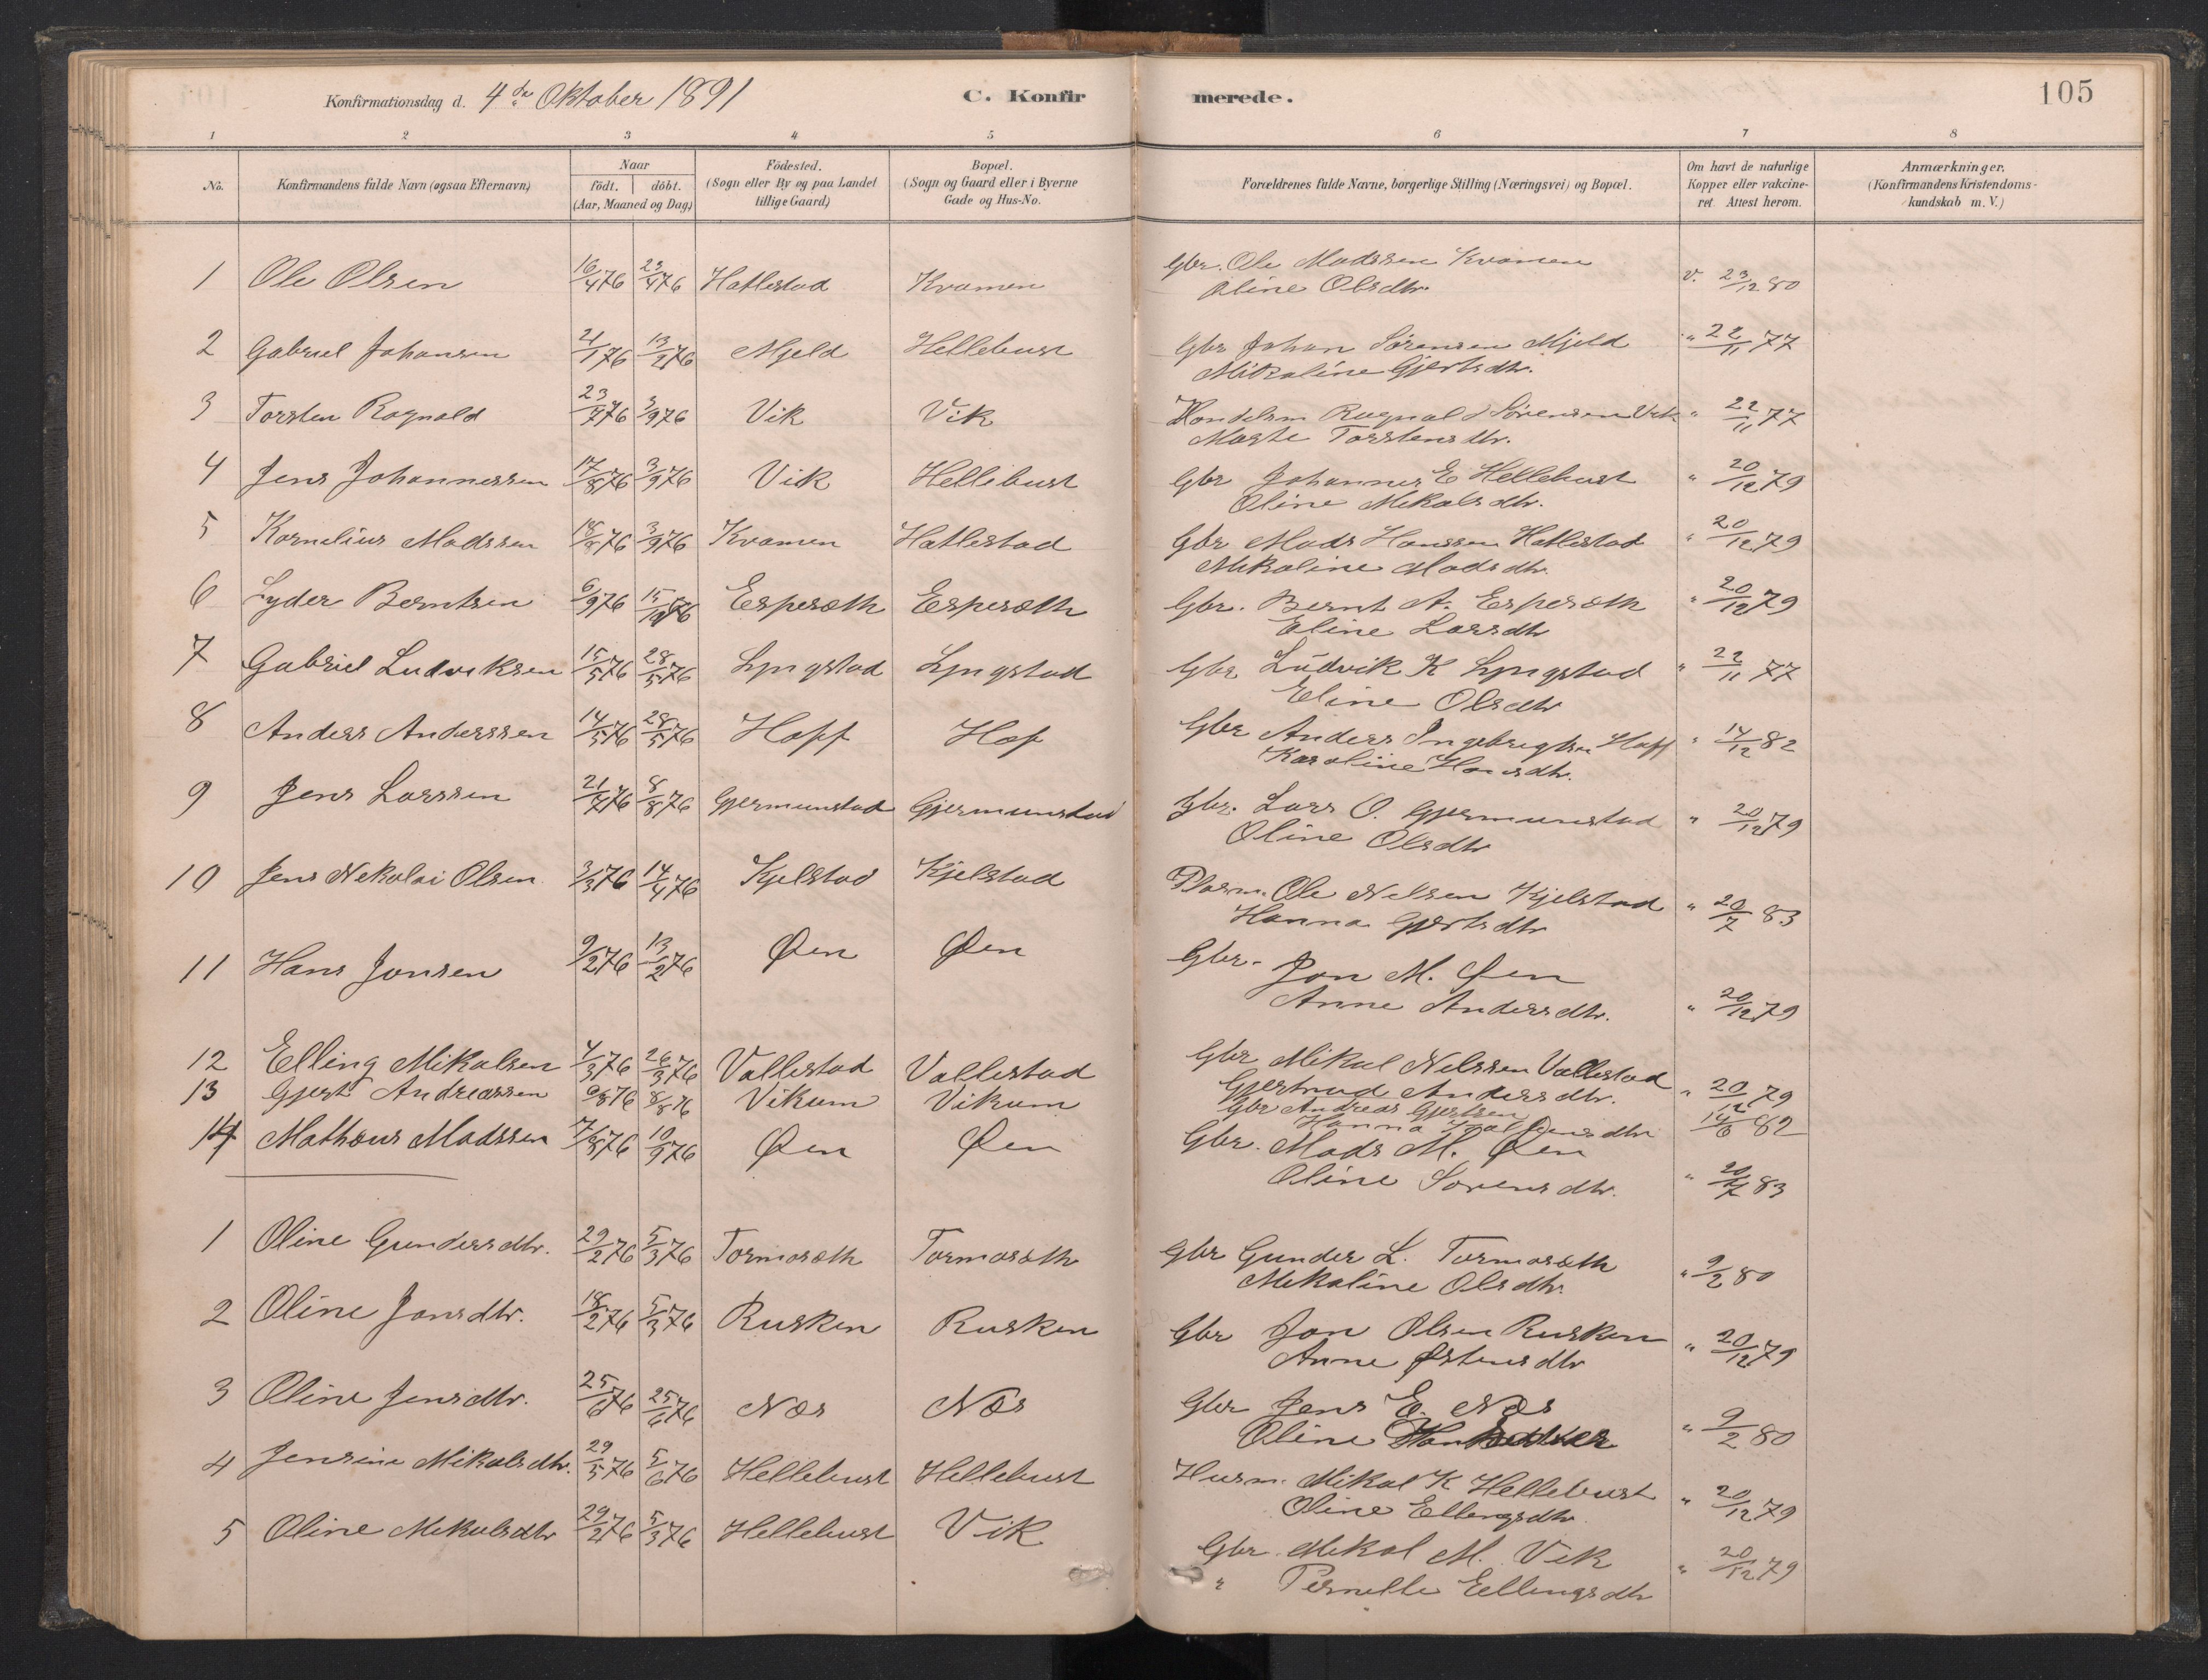 Konfirmationsdag d. 4de Oktober 1891
C. Konfirmerede.
105
1 2 3 4 5 6 7 8
No.
Konfirmandens fulde Navn (ogsaa Efternavn)
Naar
födt. döbt.
(Aar, Maaned og Dag)
Födested.
(Sogn eller By og paa Landet
tillige Gaard)
Bopæl.
(Sogn og Gaard eller i Byerne
Gade og Hus-No.
Forældrenes fulde Navne, borgerlige Stilling (Næringsvei) og Bopæl.
Om havt de naturlige
Kopper eller vakcine-
ret. Attest herom.
Anmærkninger.
(Konfirmandens Kristendoms-
kundskab m. V.)
1 Ole Olsen 16/4 76 23/4 76 Hatlestad Kvamen Gbr. Ole Madssen Kvamen v. 23/12 80
Oline Olsdtr.
2 Gabriel Johansen 21/1 76 13/2 76 Mjeld Hellebust Gbr Johan Sørensen Mjeld " 22/11 77
Mikaline Gjertsdtr.
3 Torsten Ragnald 23/7 76 3/9 76 Vik Vik Handelsm Ragnald Sørensen Vik " 22/11 77
Marte Torstensdtr.
4 Jens Johannessen 17/8 76 3/9 76 Vik Hellebust Gbr Johannes E Hellebust " 20/12 79
Oline Mikalsdtr.
5 Kornelius Madssen 18/8 76 3/9 76 Kvamen Hatlestad Gbr Mads Hanssen Hatlestad " 20/12 79
Mikaline Madsdtr.
6 Lyder Berntsen 6/9 76 15/10 76 Espesæth Espesæth Gbr. Bernt A. Espesæth " 20/12 79
Eline Larsdtr
7 Gabriel Ludviksen 15/5 76 28/5 76 Lyngstad Lyngstad Gbr Ludvik K Lyngstad " 22/11 77
Eline Olsdtr
8 Anders Anderssen 14/5 76 28/5 76 Hoff Hof Gbr Anders Ingebrigtsen Hoff " 14/12 82
Karoline Hansdtr.
9 Jens Larssen 21/7 76 8/8 76 Gjermunstad Gjermunstad Gbr. Lars O. Gjermunstad " 20/12 79
Oline Olsdtr
10 Jens Nekolai Olsen 3/3 76 14/4 76 Kjelstad Kjelstad Plasm. Ole Nelsen Kjelstad " 20/7 83
Hanna Gjertsdtr
11 Hans Jonsen 9/2 76 13/2 76 Øen Øen Gbr. Jon M. Øen
Anne Andersdtr. " 20/12 79
12 Elling Mikalsen 4/3 76 26/3 76 Vallestad Vallestad Gbr Mikal Nilssen Vallestad
Gjertrud Andersdtr. " 20/12 79
13 Gjert Andreassen 6/8 76 8/8 76 Vikum Vikum Gbr Andreas Gjertsen
Hanna 14/6 82
14 Mathæus Madssen 7/8 76 10/9 76 Øen Øen Gbr. Mads M. Øen
Oline Sørensdtr. " 20/7 83
1 Oline Gundersdtr. 29/2 76 5/3 76 Tormosæth Tormosæth Gbr Gunder L. Tormosæth " 9/2 80
Mekaline Olsdtr.
2 Oline Jonsdtr. 18/2 76 5/3 76 Rusken Rusken Gbr Jon Olsen Rusken " 20/12 79
Anne Østensdtr
3 Oline Jensdtr. 25/6 76 25/6 76 Næs Næs Gbr Jens E. Næs " 9/2 80
Oline
4 Jensine Mikalsdtr. 29/5 76 5/6 76 Hellebust Hellebust Husm. Mikal K Hellebust " 20/12 79
Oline Ellingsdtr.
5 Oline Mekalsdtr 29/2 76 5/3 76 Hellebust Vik Gbr Mekal M. Vik " 20/12 79
" Pernelle Ellingsdtr